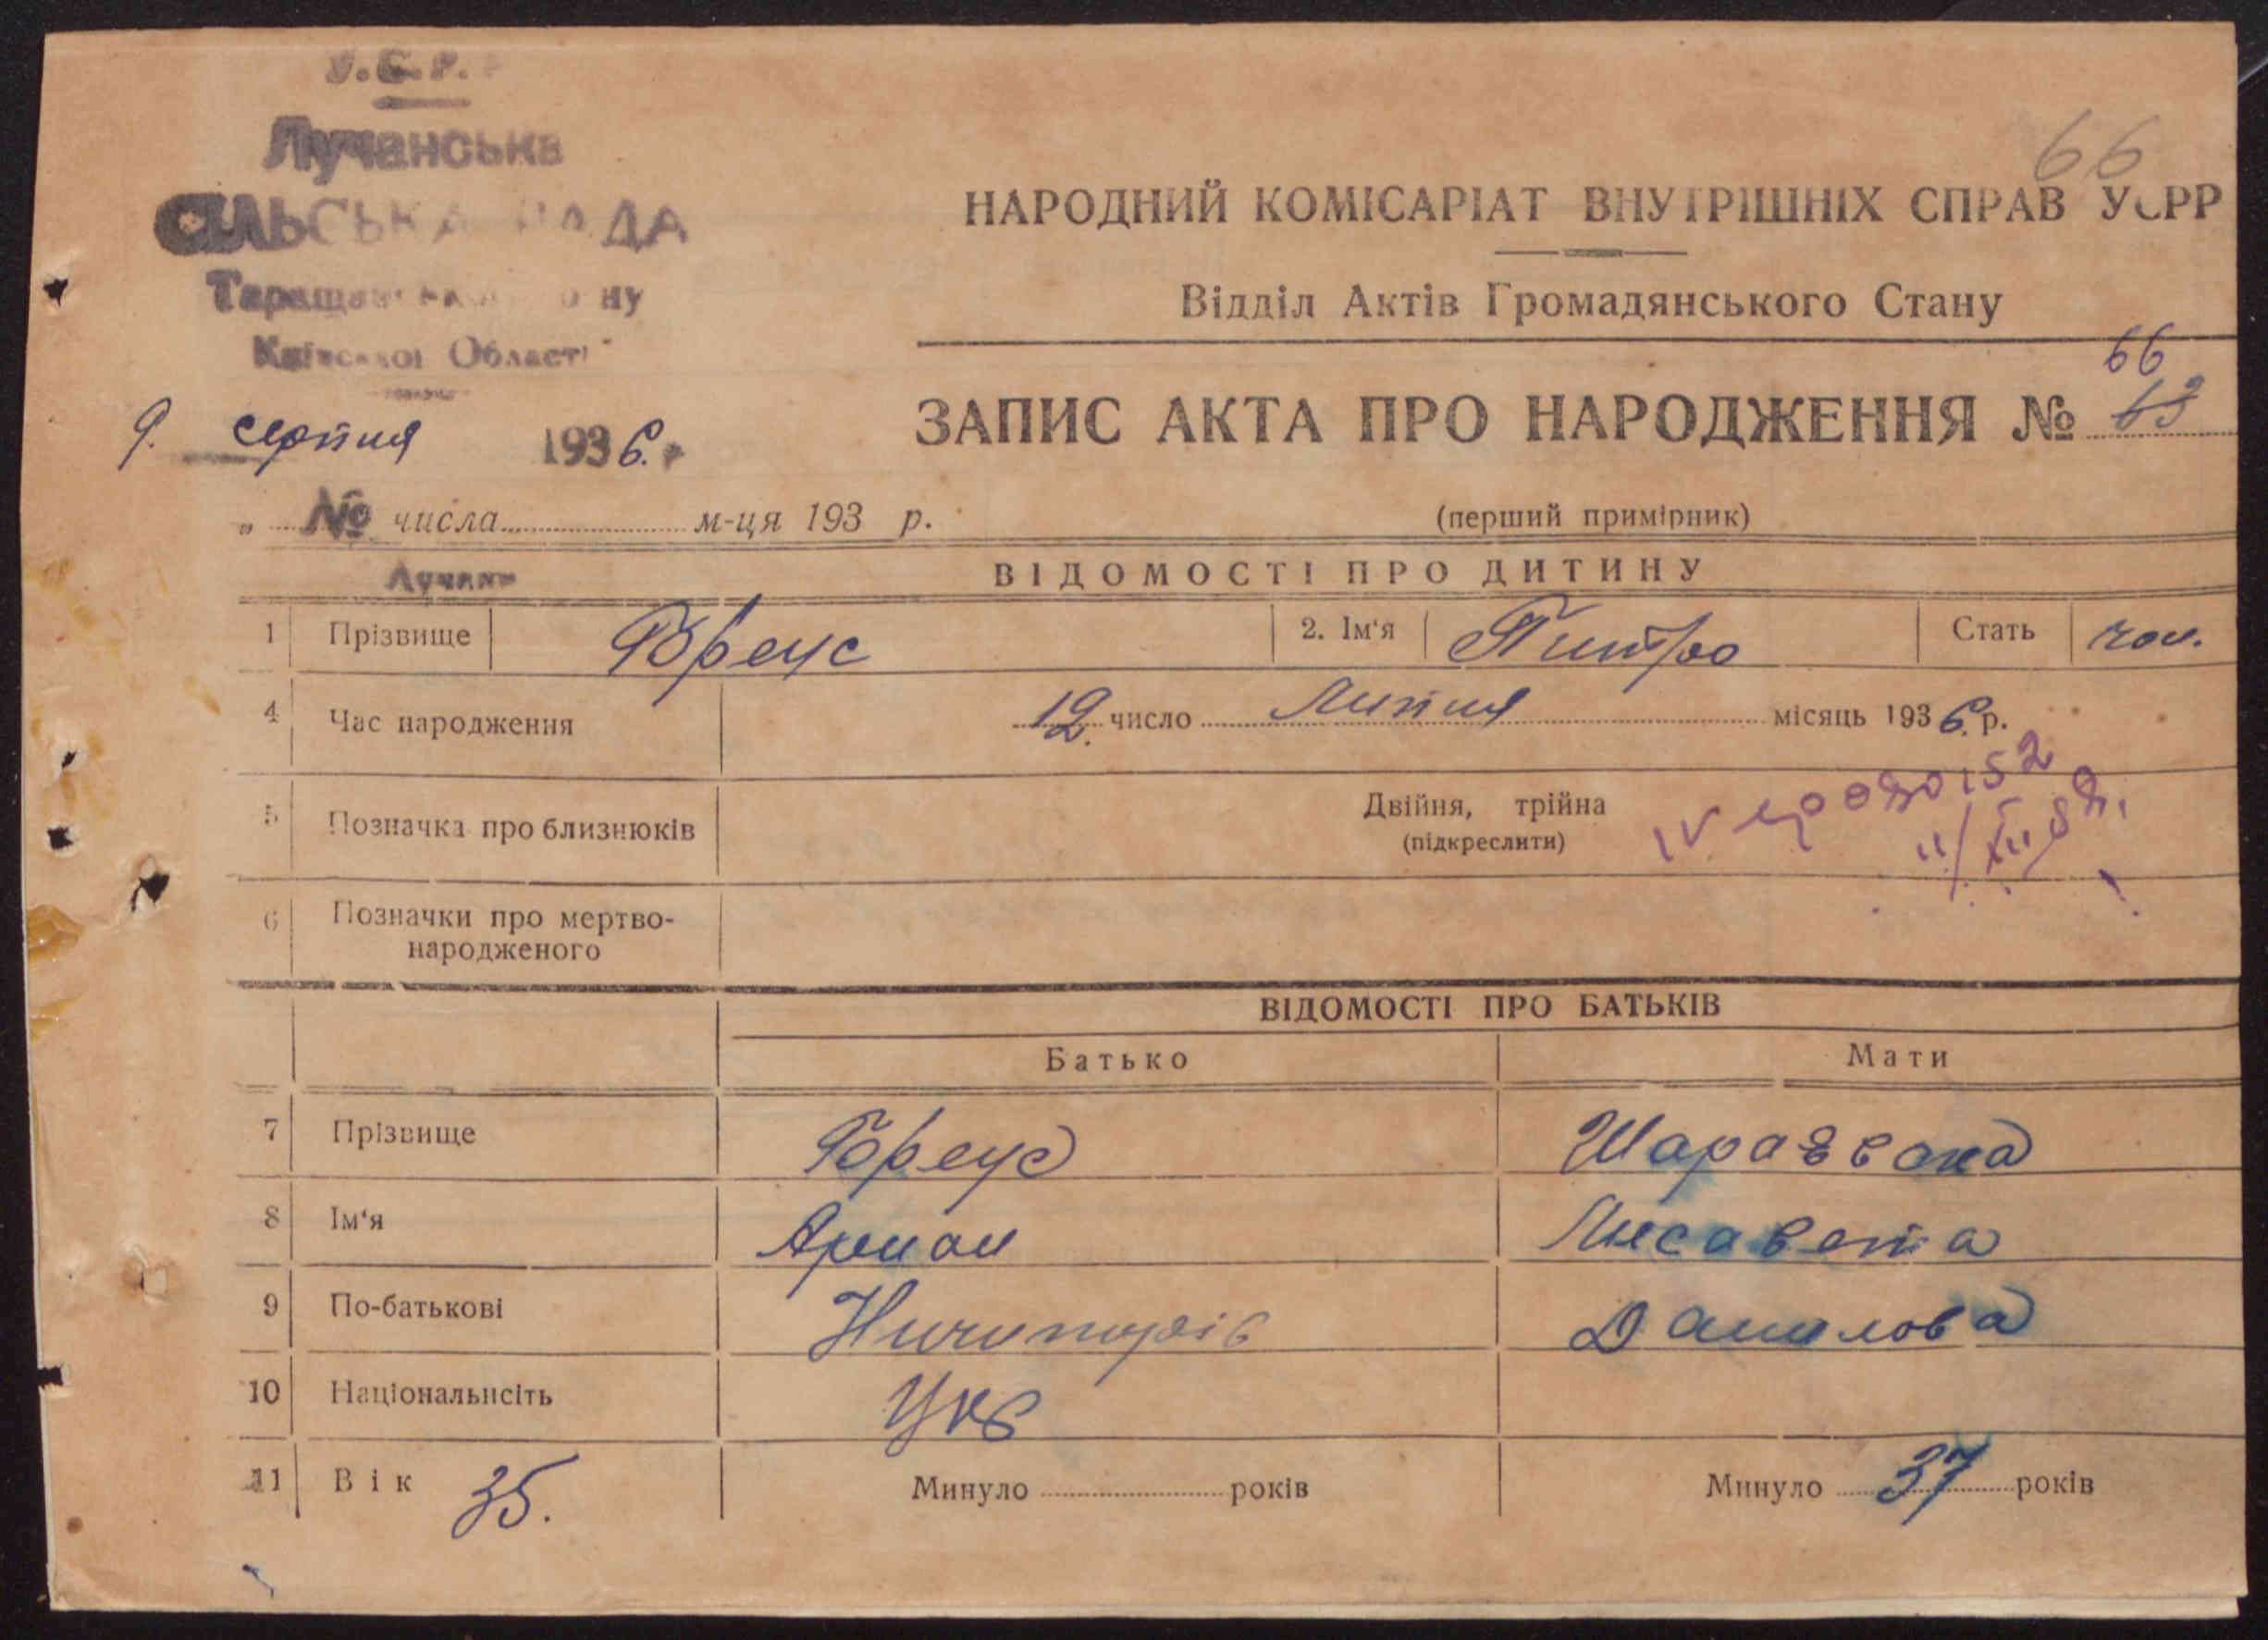 У.С.Р.Р.
Лучанська
СІЛЬСЬКА РАДА
Таращанського району
Київської Області
9. серпня 1936 р.
66
НАРОДНИЙ КОМІСАРІАТ ВНУТРІШНІХ СПРАВ УСРР
Відділ Актів Громадянського Стану
66
ЗАПИС АКТА ПРО НАРОДЖЕННЯ № 63
„ № числа м-ця 193 р.
(перший примірник)
Лучани
ВІДОМОСТІ ПРО ДИТИНУ
1 Прізвище Бреус 2. Ім‘я Питро Стать чол.
4 Час народження 12. число Липня місяць 1936 р.
5 Позначка про близнюків Двійня, трійна
(підкреслити)
6 Позначки про мертво-
народженого
ВІДОМОСТІ ПРО БАТЬКІВ
Батько Мати
7 Прізвище Бреус
8 Ім‘я Лисавета
9 По-батькові Ничипорів Данилова
10 Національнсіть Укр
11 Вік 35. Минуло років Минуло 37 років